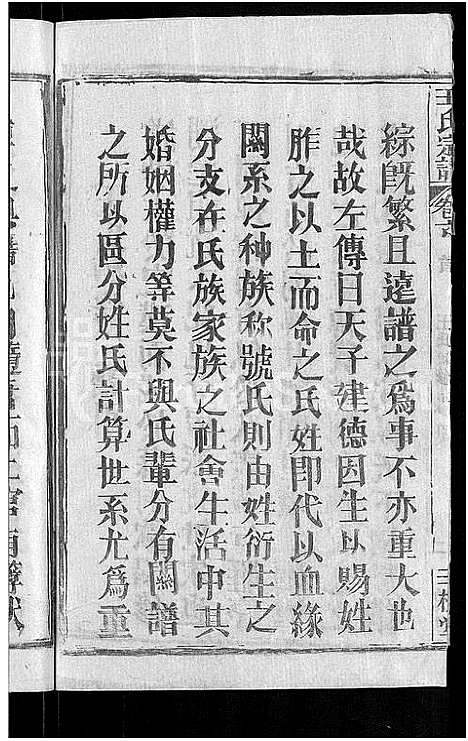 王氏宗譜
綜既繁且遠譜之為事不亦重大也
哉故左傳曰天子建德因生以賜姓
胙之以土而命之氏姓即代以血緣
關系之种族称號氏則由姓衍生之
分支在氏族家族之社會生活中其
婚姻權力等莫不與氏輩分有關譜
之所以區分姓氏計算世系尤為重